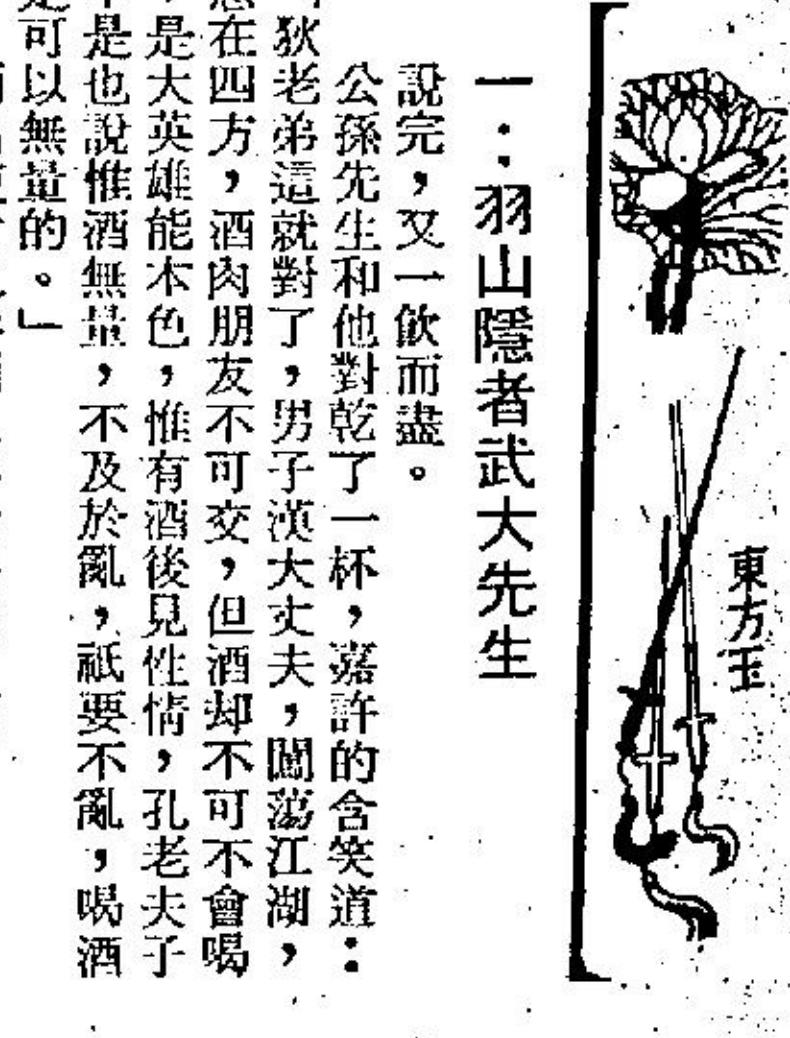 東方玉
一：羽山隱者武大先生
說完，又一飲而盡。
公孫先生和他對乾了一杯，嘉許的含笑道：
狄老弟這就對了，男子漢大丈夫，闖蕩江湖，
在四方，酒肉朋友不可交，但酒却不可不會喝
，是大英雄能本色，惟有酒後見性情，孔老夫子
是也說惟酒無量，不及於亂，祇要不亂，喝酒
可以無量的。」